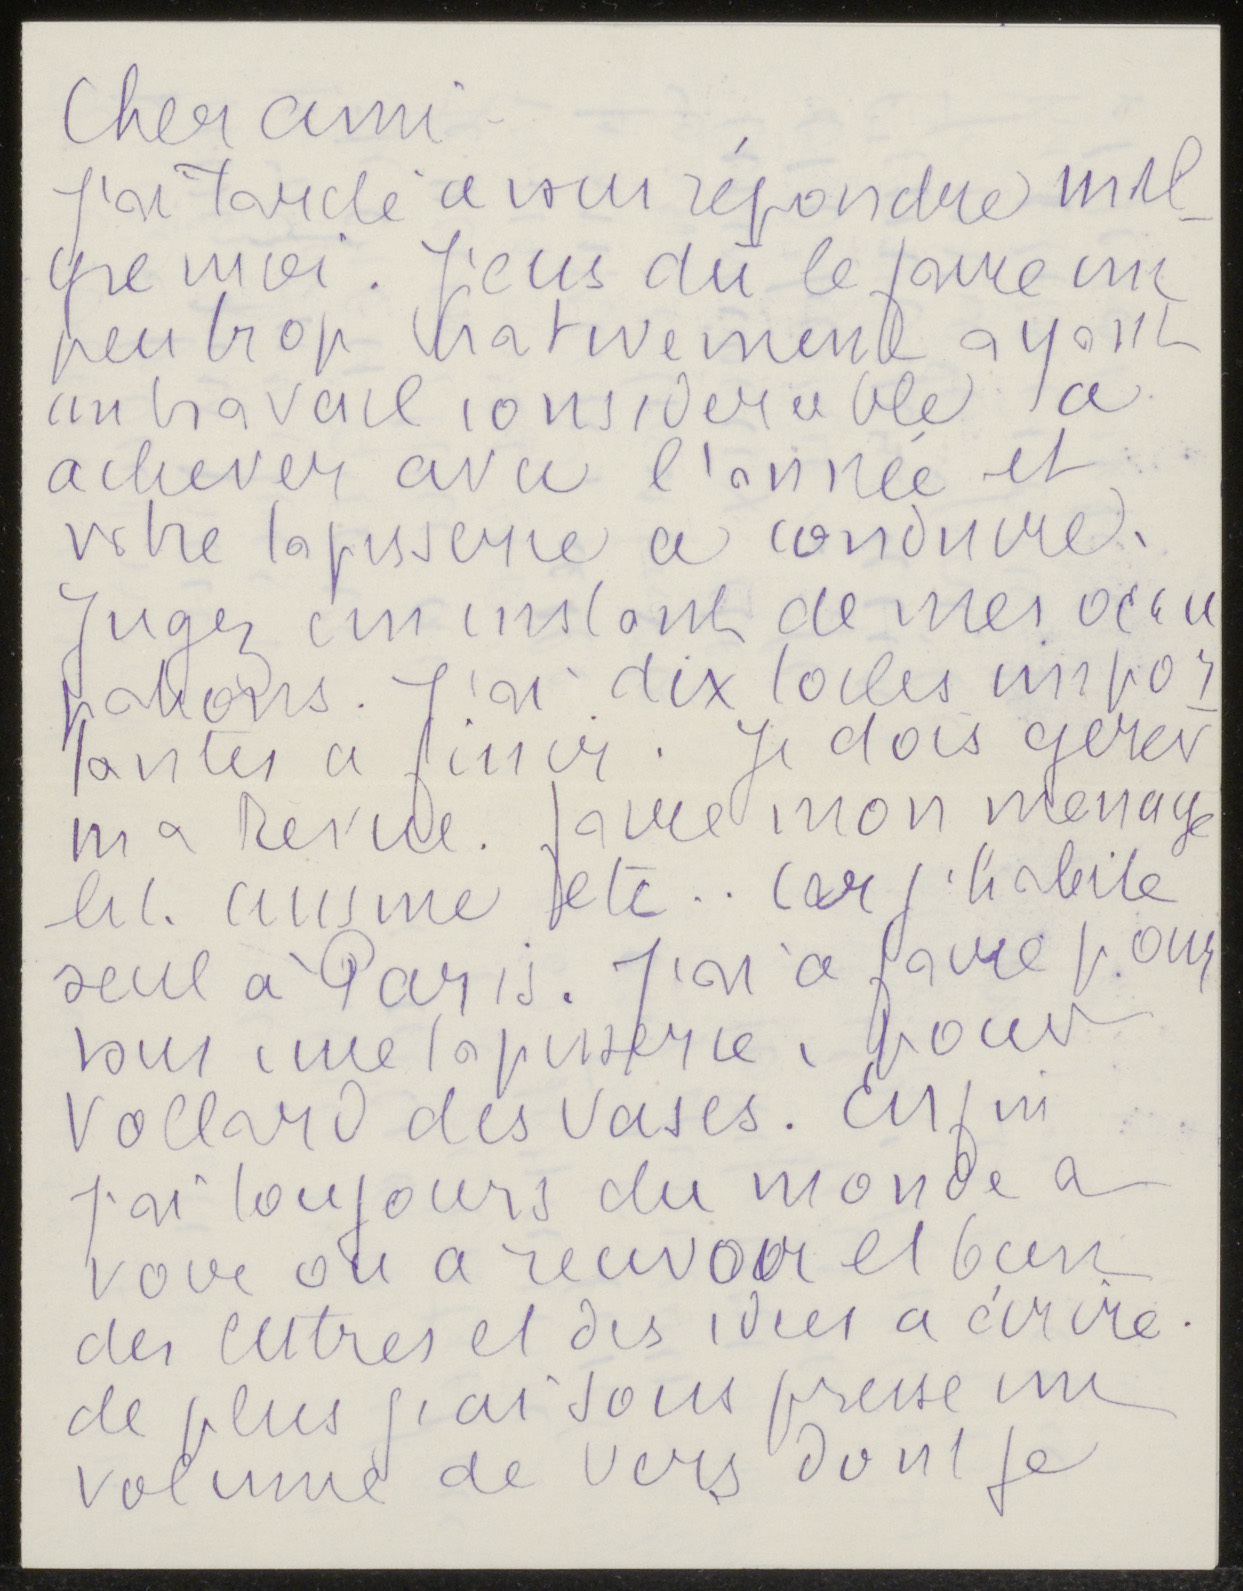 Cher ami
J'ai tardé a vous répondre mal-
gre moi. J'eus dû le faire un
peu trop hativement ayant
un travail considerable a
achever avec l'année et
votre tapisserie a conduire.
Jugez un instant de mes occu
pations. J'ai dix toiles impor-
tantes a finir. Je dois gerer
ma Revue. faire mon menage
lit. cuisine etc.. car j'habite
seul à Paris. J'ai a faire pour
vous une tapisserie, pour
Vollard des vases. Enfin
j'ai toujours du monde a
voir ou a recevoir et bien
des lettres et des idées a écrire.
de plus j'ai sous presse un
volume de vers dont je